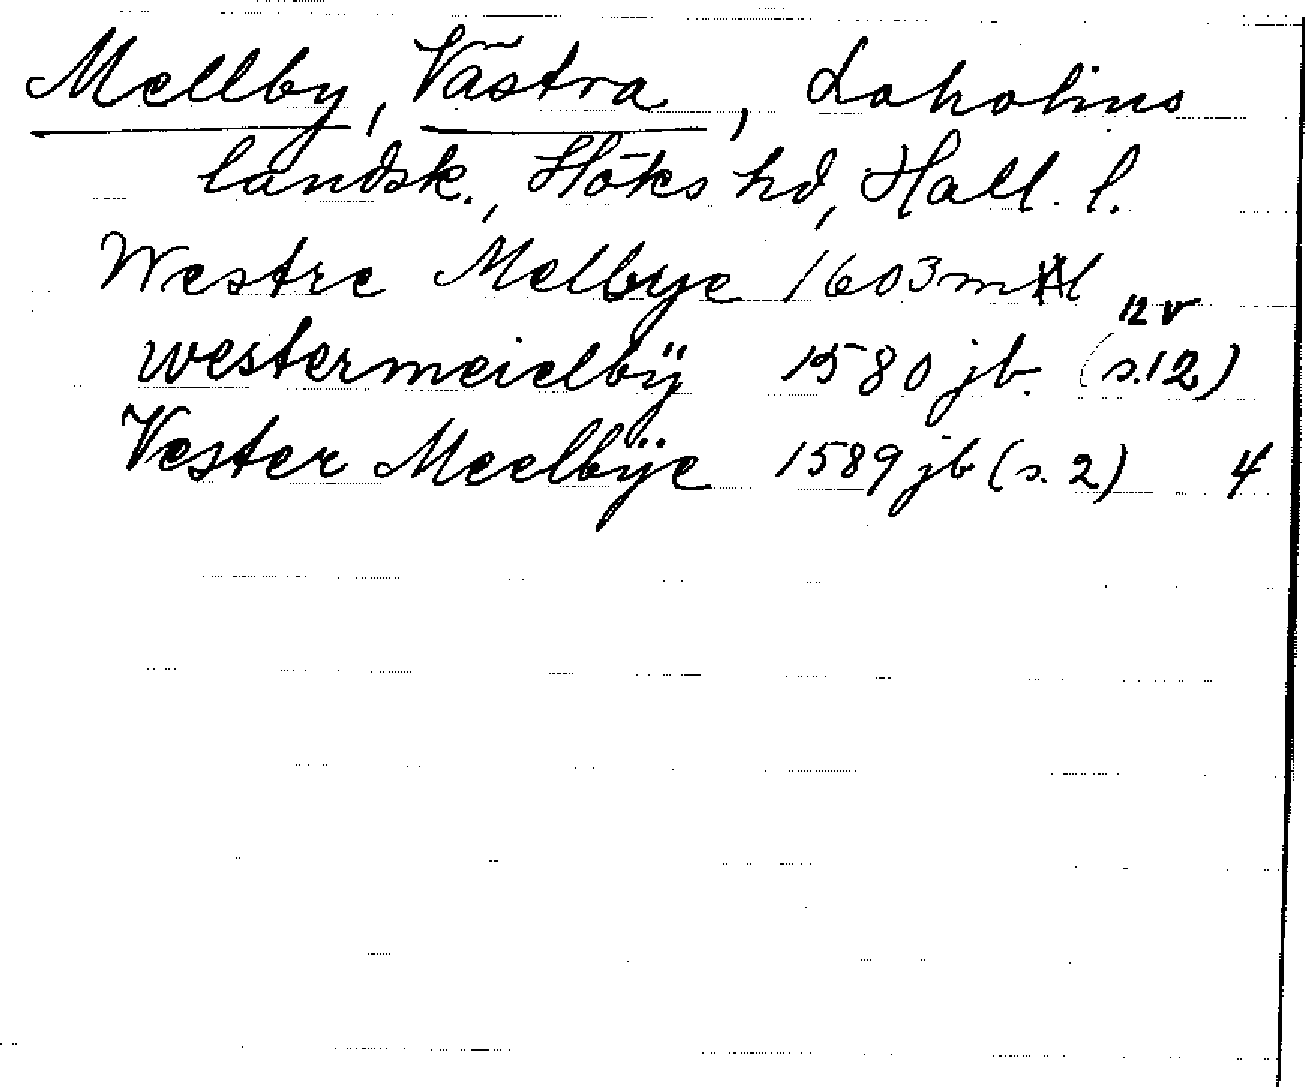 Mellby, Västra, Laholms
landsk., Höks hd, Hall. l.
Westre Melbye 1603 mtl
12 v
westermeielbÿ 1580 jb. (s.12)
Vester Meelbÿe 1589 jb (s. 2) 4